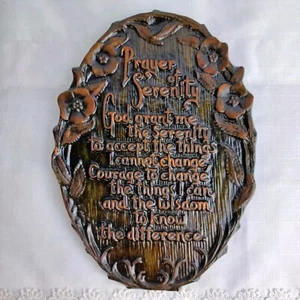 Prayer
of
Serenity
God grant me
the serenity
to accept the things
I cannot change
Courage to change
the things I can
and the Wisdom
to know
the difference